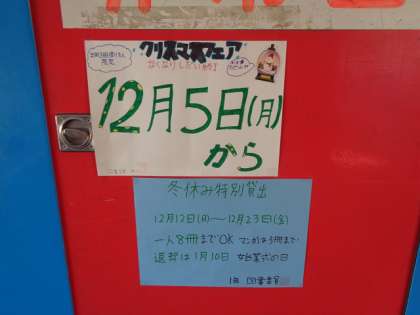 クリスマスフェア
なくなりしだい終了
12月5日(月)
から
冬休み特別貸出
12月12日(月)～12月23日(金)
一人8冊までOK マンガは3冊まで
返却は1月10日 始業式の日
図書委員